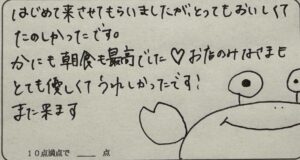 はじめて来させてもらいましたが、とってもおいしくて
たのしかったです。
かにも朝食も最高でした♡お店のみなさまも
とても優しくてうれしかったです！
また来ます
10点満点で ＿＿ 点